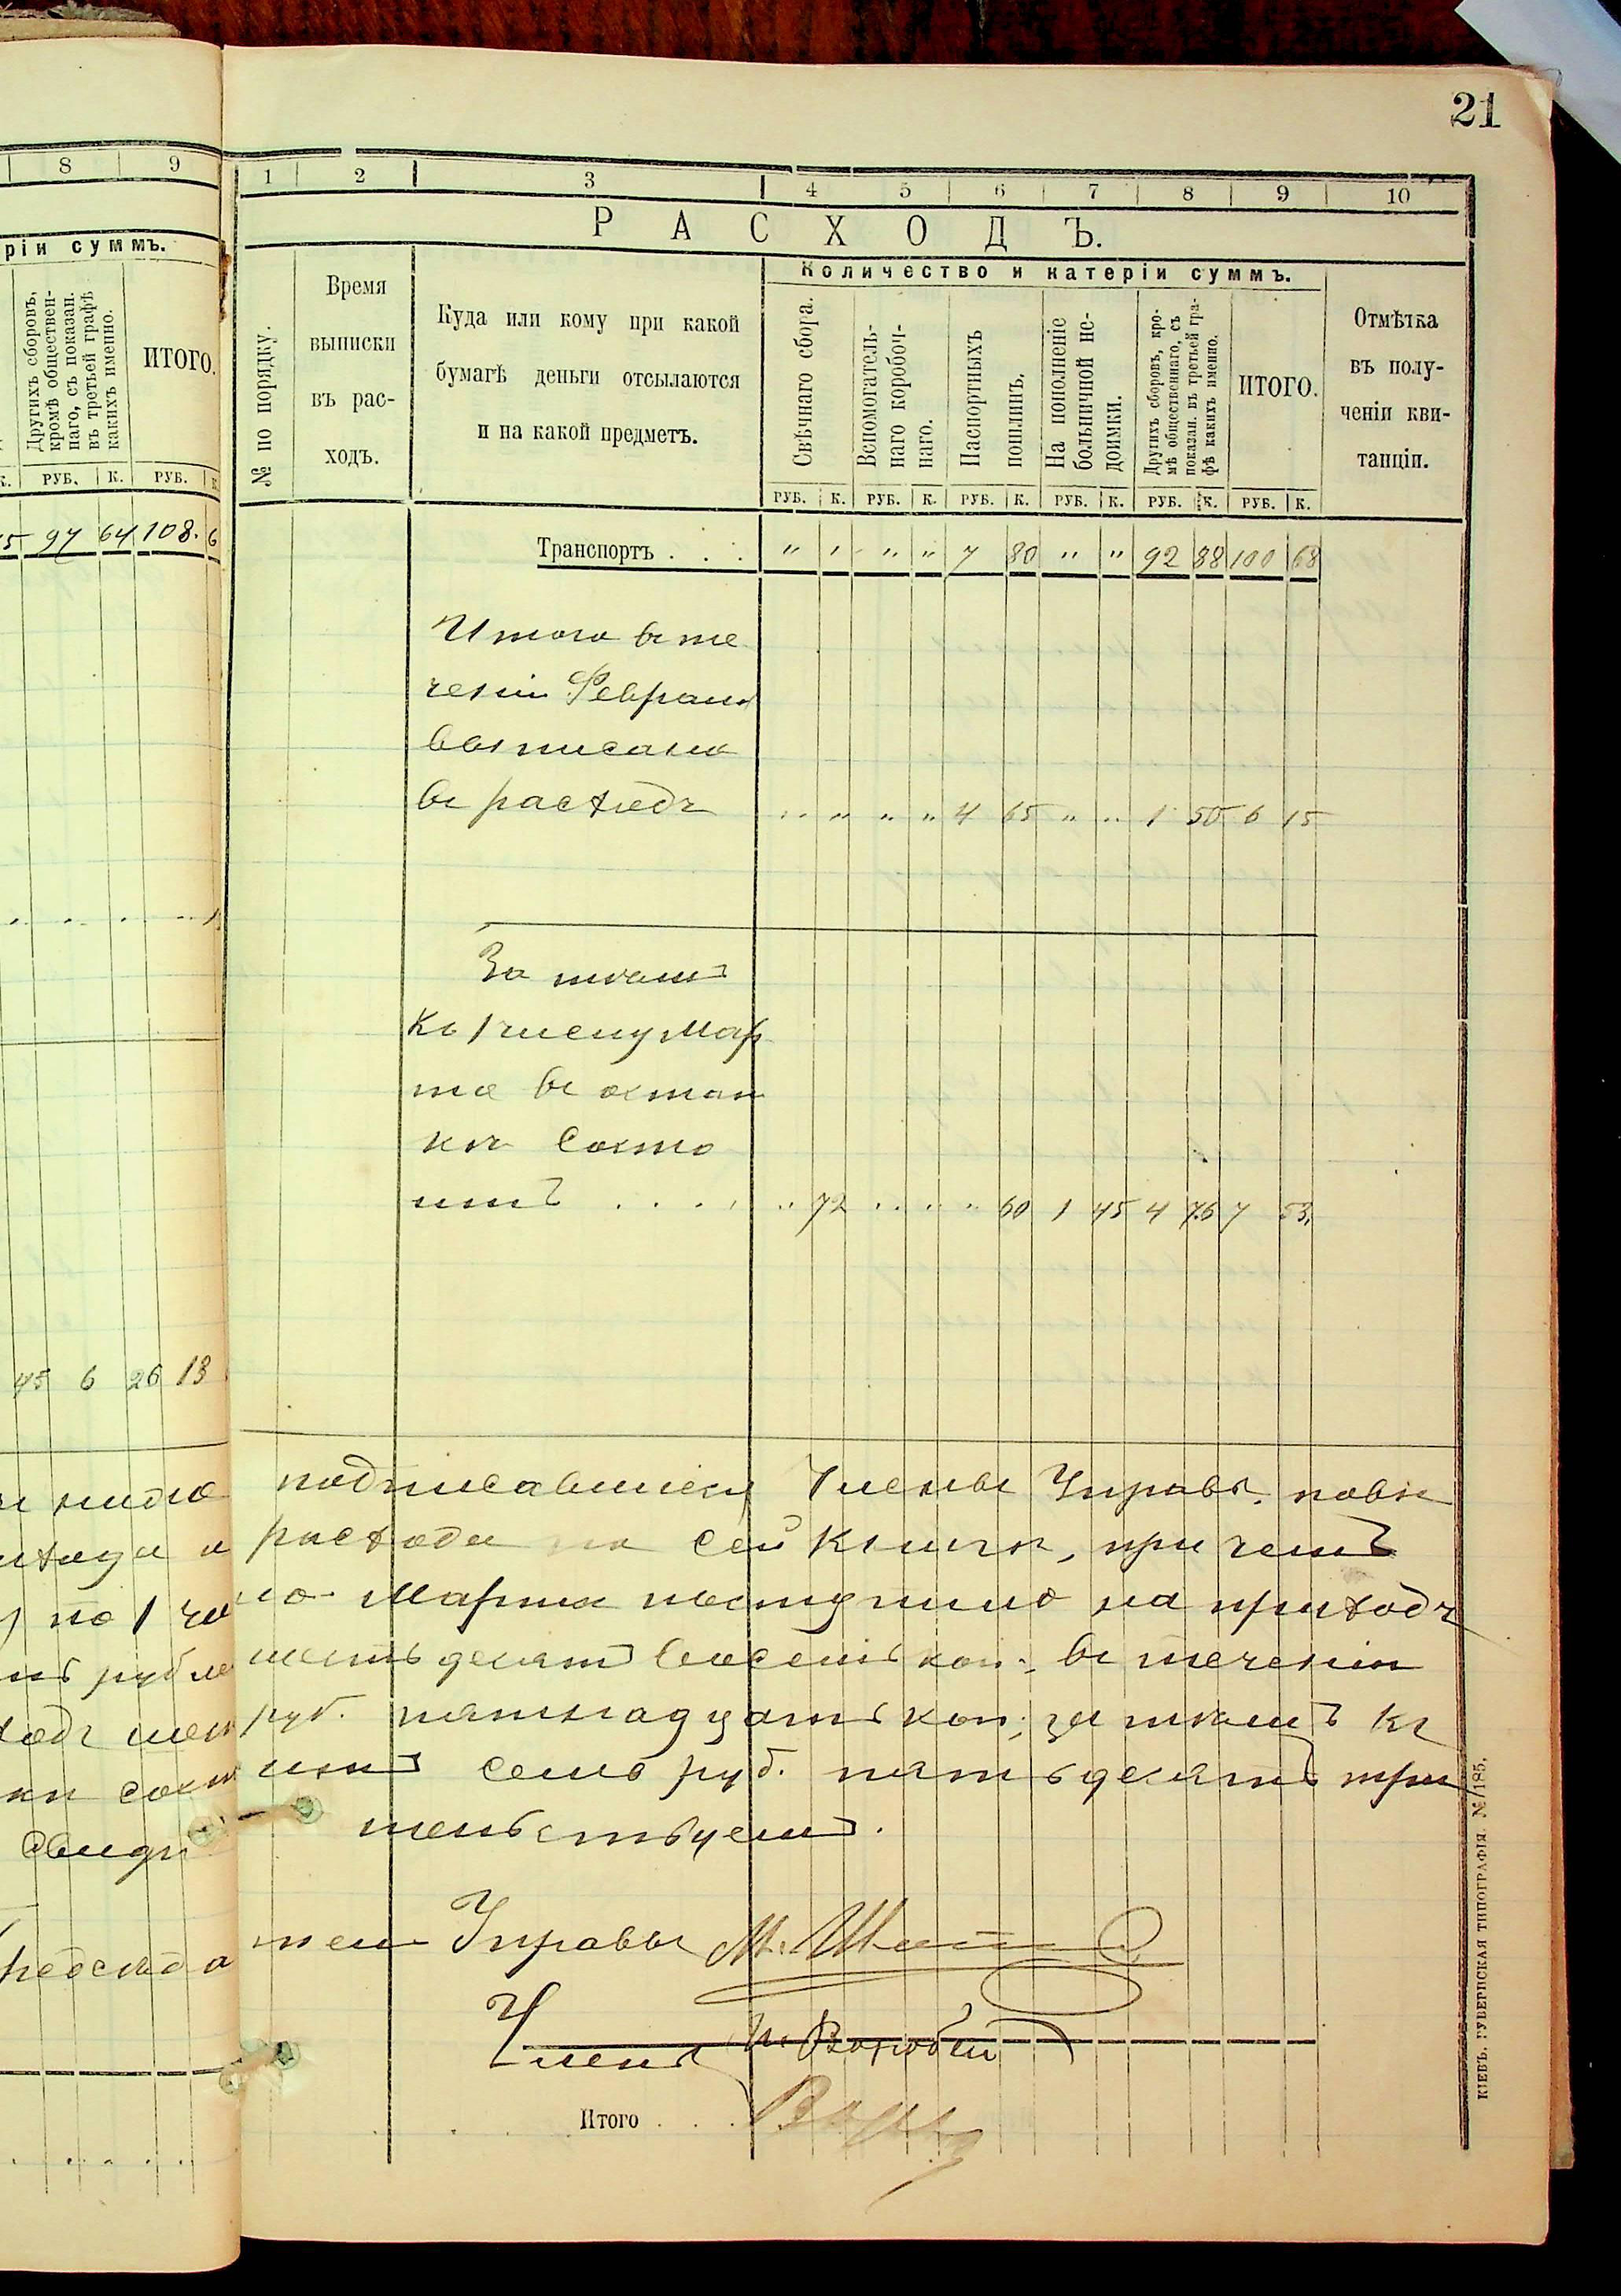 21
8 9
рiи суммъ.
Другихъ сборовъ,
кромѣ обществен-
наго, съ показан.
въ третьей графѣ
какихъ именно.
ИТОГО.
К. РУБ. К. РУБ.
97 64 108. 6
45 6 26 13
по 1
Свидѣ
1 2 3 4 5 6 7 8 9 10
РАСХОДЪ.
Количество и категрiи суммъ.
№ по порядку.
Время
выписки
въ рас-
ходъ.
Куда или кому при какой
бумагѣ деньги отсылаются
и на какой предметъ.
Свѣчнаго сбора.
Вспомогатель-
наго коробоч-
наго.
Паспортныхъ
пошлинъ.
На пополненiе
больничной не-
доимки.
Другихъ сборовъ, кро-
мѣ общественнаго, съ
показан. въ третьей гра-
фѣ какихъ именно.
ИТОГО.
Отмѣтка
въ полу-
ченiи кви-
танцiи.
РУБ. К. РУБ. К. РУБ. К. РУБ. К. РУБ. К. РУБ. К.
Транспортъ . . . " " " " 7 80 " " 92 88 100 68
Итого въ те
ченiи Февраля
выписано
въ расходъ " " " " 4 65 " " 1 50 6 15
За тѣмъ
Къ 1 числу Мар
та въ остат
кѣ состо
итъ . . . . " 72 " " " 60 1 45 4 76 7 53.
подписавшiеся Члены Управы, повѣ
расхода по сей книгѣ, при чемъ
Марта поступило на приходъ
шестьдесятъ восемь коп., въ теченiи
руб. пятнадцать коп., за тѣмъ къ
итъ семь руб. пятьдесятъ три
тельствуемъ.
тель Управы М.
Члены Воробей
Итого . . .
КIЕВЪ. ГУБЕРНСКАЯ ТИПОГРАФIЯ. №/185.